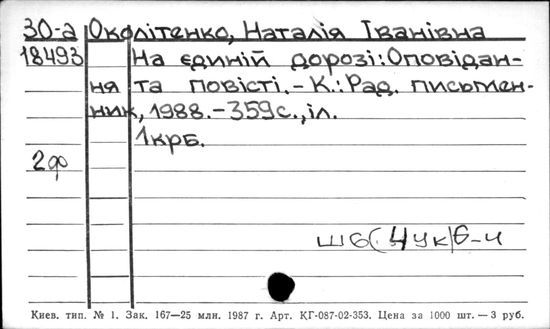 30-а Околітенко, Наталія Іванівна
18493 На єдиній дорозі: Оповідан-
ня та повісті. - К.: Рад. письмен-
ник, 1988. - 359 с., іл.
1 крб.
2 ф
Ш6(4Ук)6-4
Киев. тип. № 1. Зак. 167—25 млн. 1987 г. Арт. КГ-087-02-353. Цена за 1000 шт. — 3 руб.